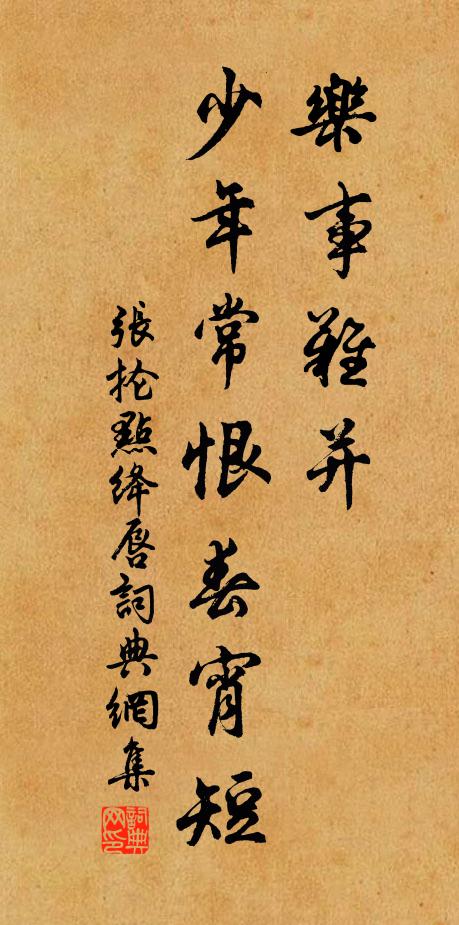 樂事難并
少年常恨春宵短
張掄點絳唇詞典網集
詞典网印